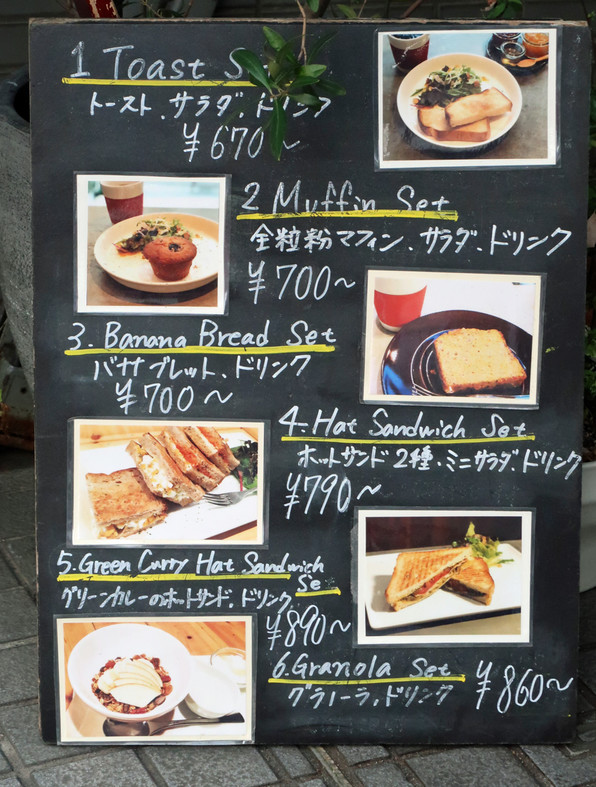 1 Toast S
トースト、サラダ、ドリンク
¥670～
2 Muffin Set
全粒粉マフィン、サラダ、ドリンク
¥700～
3. Banana Bread Set
バナナブレット、ドリンク
¥700～
4. Hat Sandwich Set
ホットサンド2種・ミニサラダ、ドリンク
¥790～
5. Green Curry Hat Sandwich
Se
グリーンカレーのホットサンド、ドリンク
¥890～
6. Granola Set
グラノーラ、ドリンク
¥860～